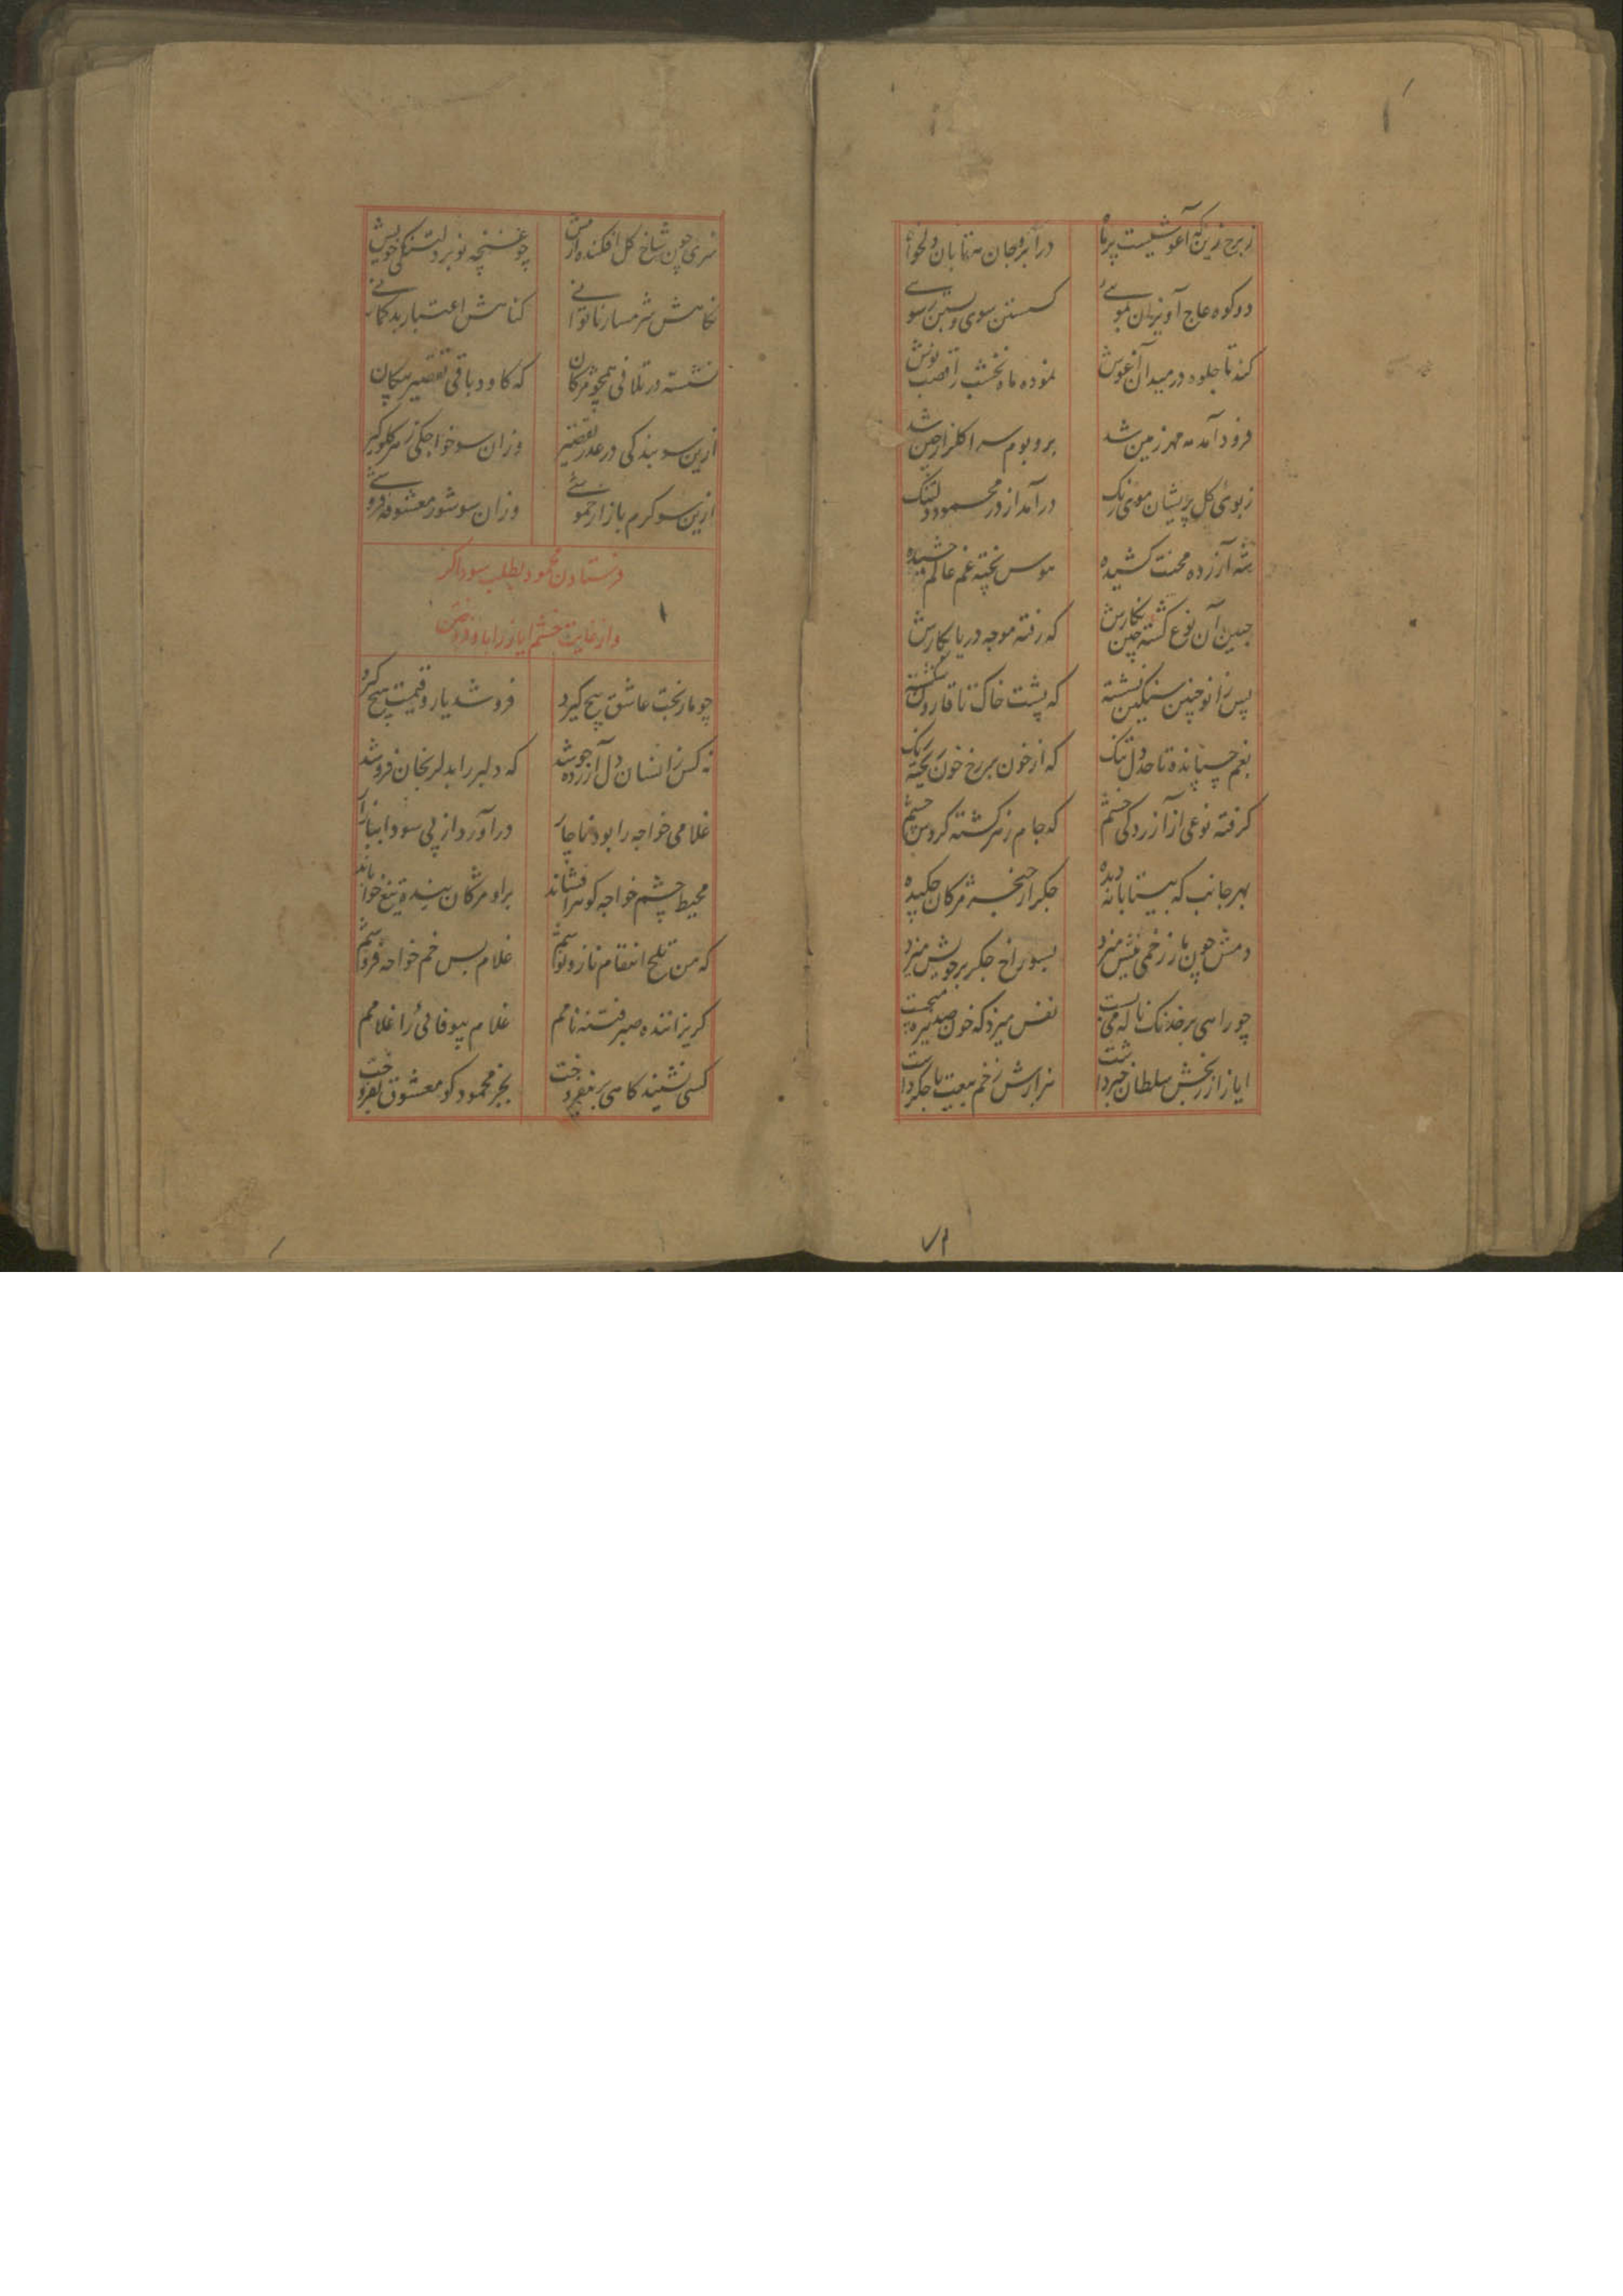 ز برج زین که آغوشیست پر ماه درآ بر و جان مه تابان دلخواه
دو کوه عاج آویزان بموئی گسستن سوی و بستن سوئی
کند تا جلوه در میدان آغوش نموده ماه نخشب از قصب پوش
فرود آمد مه مهر زمین شد بر و بوم سرا گلزار چین شد
ز بوی گل پریشان موی زنگ درآمد از در محمود دلتنگ
شه آزرده محنت کشیده هوس پخته غم عالم چشیده
جبین آن نوع گشته چین نگارش که رفته موجه دریا بکارش
پس زانو چنین سنگین نشسته که پشت خاک تا قارون شکسته
بغم چسپانده تا حد دل تنگ که از خون بر رخ خون ریخته رنگ
گرفته نوعی از آزردگی خشم که جام زهر گشته کرده چشم
بهر جانب که بیتابانه دیده جگر از خنجر مژگان چکیده
دمش چون مار زخمی نیش میزد بسوراخ جگر بر خویش میزد
چو راهی بر خدنگ ناله می‌بست نفس میزد که خون صد می‌جست
ایاز از رنجش سلطان خبر داشت هزارش زخم هیبت با جگر داشت
سری چون شاخ گل افکنده در پیش چو غنچه نو بر دلتنگی خویش
نگاهش شرمسار ناتوانی گناهش اعتبار بدگمانی
نشسته در تلافی همچو مژگان که کاود باقی تقصیر پیکان
ازین سو بندگی در عذر تقصیر وزان سو خواجگی زهر گلوگیر
ازین سو گرم بازار خموشی وزان سو شور معشوقه فروشی
فرستادن محمود بطلب سوداگر
و از غایت خشم ایاز را باو فروختن
چو مار بخت عاشق پیچ گیرد فروشد یار و قیمت هیچ گیرد
نه کس زانسان دل آزرده جوشد که دلبر را بدلرنجان فروشد
غلامی خواجه را بود ناچار درآورد از پی سودا ببازار
محیط چشم خواجه گوهر افشاند بر او مژگان سینه تیغ خواباند
که من تلخ انتقام ناز و نوشم غلام بس خم خواجه فروشم
گریزاننده صبر فتنه نامم غلام بیوفائی را غلامم
کسی نشنید کاهی بر نفروخت بجز محمود کو معشوق بفروخت
۷۱